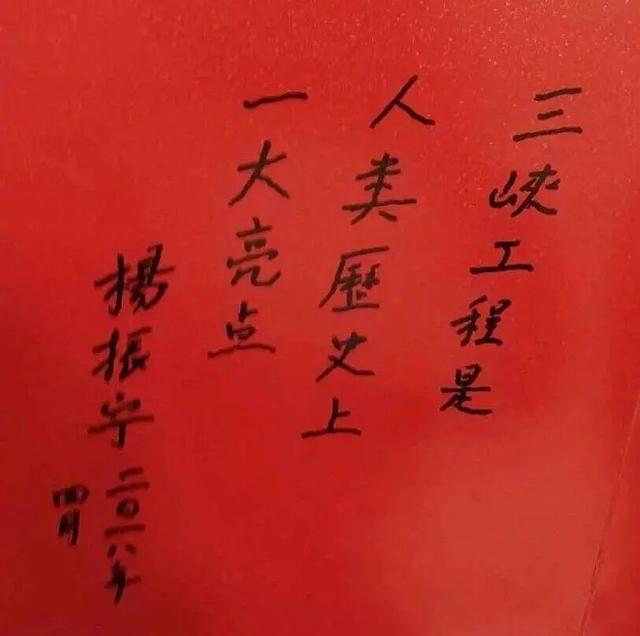 三峽工程是
人类歷史上
一大亮点
楊振宁二〇一六年
四月